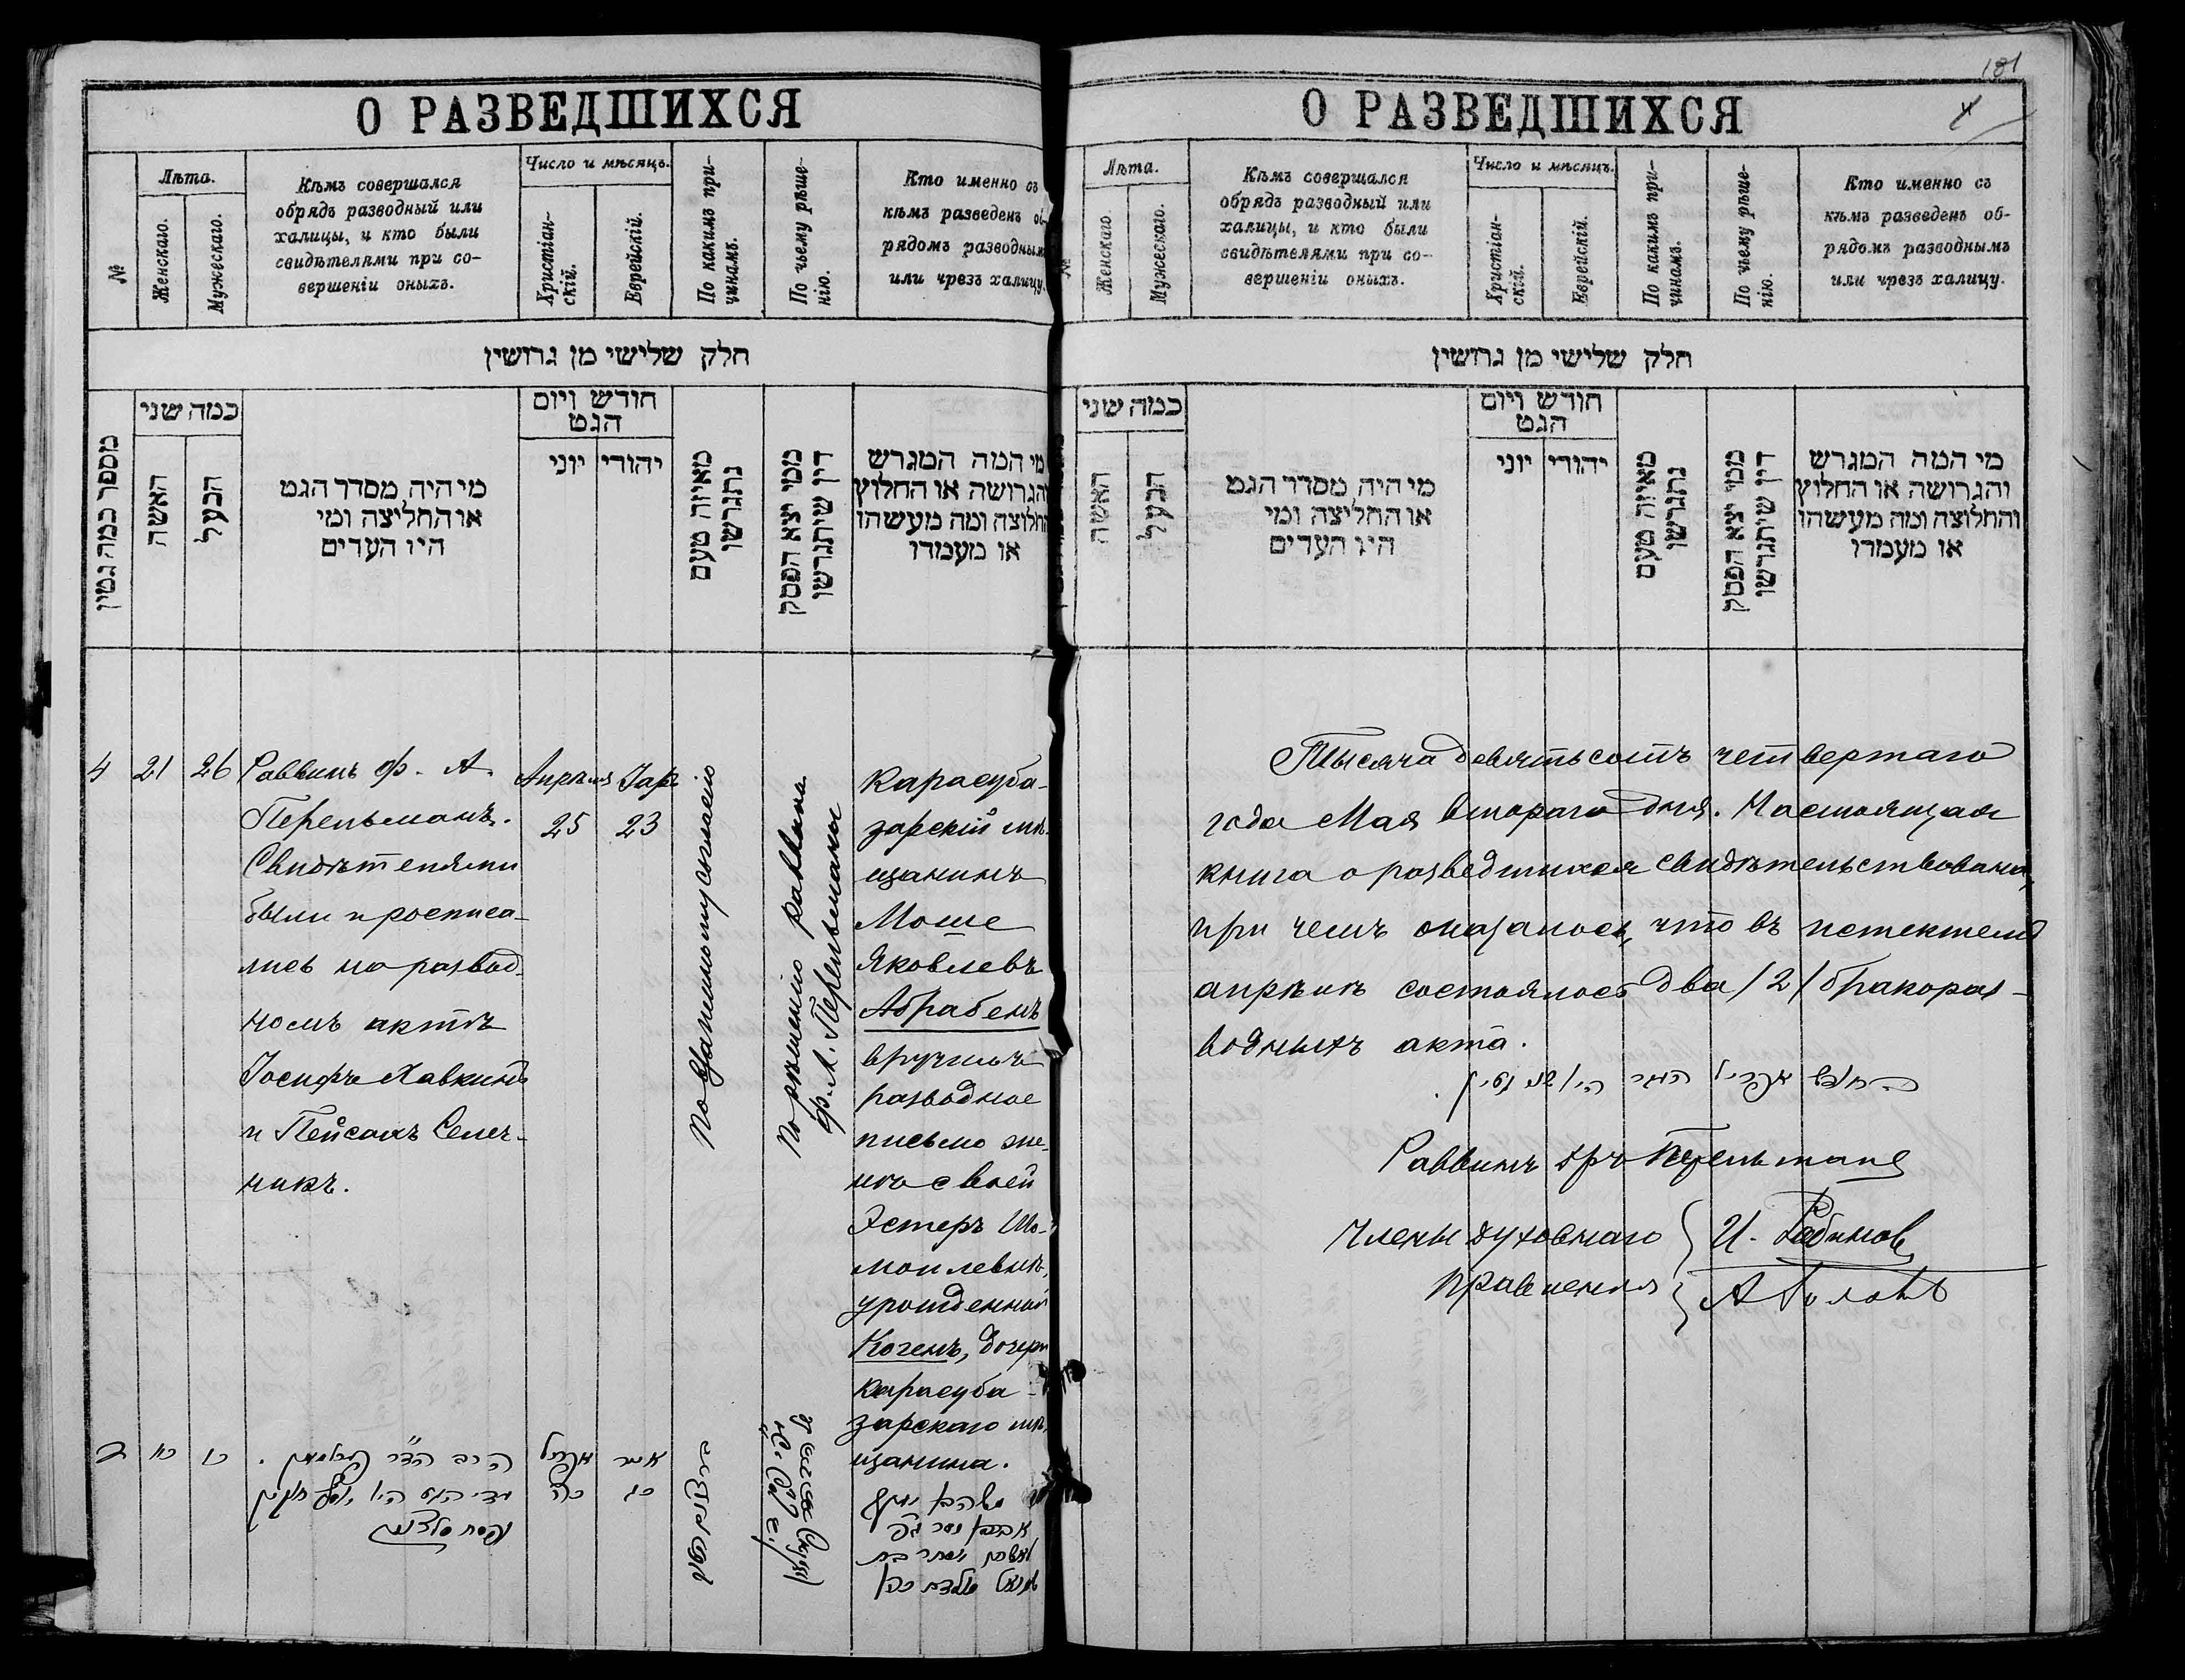 О РАЗВЕДШИХСЯ
№
Лѣта.
Женскаго.
Мужескаго.
Кѣмъ совершался
обрядъ разводный или
халицы, и кто были
свидѣтелями при со-
вершеніи оныхъ.
Число и мѣсяцъ.
Христіан-
скій.
Еврейскій.
По какимъ при-
чинамъ.
По чьему рѣше-
нію.
Кто именно съ
кѣмъ разведенъ об-
рядомъ разводнымъ
или чрезъ халицу.
חלק שלישי מן גרושין
מספר כמה גטין
כמה שני
האשה
הבעל
מי היה מסדר הגט
או החליצה ומי
היו העדים
חודש ויום
הגט
יוני יהודי
מאיזה טעם
נתגרשו
ממי יצא הפסק
דין שיתגרשו
מי המה המגרש
והגרושה או החלוץ
והחלוצה ומה מעשהו
או מעמדו
4
21
26
Раввинъ Ф. А.
Перельманъ.
Свидѣтелями
были и росписа-
лись на развод-
номъ актѣ
Іосифъ Хавкинъ
и Пейсахъ Селеч-
никъ.
Апрѣля
25
Іаръ
23
По взаимному согласію
По рѣшенію раввина
Ф. А. Перельмана
Карасуба-
зарскій мѣ-
щанинъ
Моше
Яковлевъ
Абрабенъ
вручилъ
разводное
письмо же-
нѣ своей
Эстеръ Шо-
моилевнѣ,
урожденной
Когенъ, дочери
Карасуба-
зарскаго мѣ-
щанина.
ד
כא
כו
הרב הד"ר פרלמאן.
ועדי הגט היו יוסף חאווקין
ופסח
אפריל
כה
אייר
כג
משה בן יעקב
אסתר בת
שמואל
כהן
181
4
О РАЗВЕДШИХСЯ
№
Лѣта.
Женскаго.
Мужескаго.
Кѣмъ совершался
обрядъ разводный или
халицы, и кто были
свидѣтелями при со-
вершеніи оныхъ.
Число и мѣсяцъ.
Христіан-
скій.
Еврейскій.
По какимъ при-
чинамъ.
По чьему рѣше-
нію.
Кто именно съ
кѣмъ разведенъ об-
рядомъ разводнымъ
или чрезъ халицу.
חלק שלישי מן גרושין
כמה שני
האשה
הבעל
מי היה מסדר הגט
או החליצה ומי
היו העדים
חודש ויום
הגט
יוני יהודי
מאיזה טעם
נתגרשו
ממי יצא הפסק
דין שיתגרשו
מי המה המגרש
והגרושה או החלוץ
והחלוצה ומה מעשהו
או מעמדו
Тысяча девятьсотъ четвертаго
года Мая втораго дня. Настоящая
книга о разведшихся свидѣтельствована,
при чемъ оказалось, что въ истекшемъ
апрѣлѣ состоялось два /2/ бракораз-
водныхъ акта.
בחודש אפריל העבר היו שני גטין.
Раввинъ дръ Перельманъ
Члены духовнаго
правленія
И. Рабинов